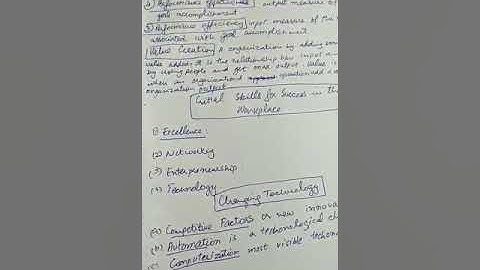 4) Performance effectiveness output measure of
goal accomplishment
5) Performance efficiency input measure of the
associated with goal accomplishment
Value Creation A organization by adding
value added, it is the relationship b/w input a
by using people and get max output. Value is
when an organizations operation add a
organization output
Critical Skills for Success in th
Workplace
(1) Excellence:
(2) Networking
(3) Enterpreneurship
(4) Technology
Changing Technology
(a) Competitive Factors or new innova
(b) Automation is a technological ch
(c) Computerization most visible techno